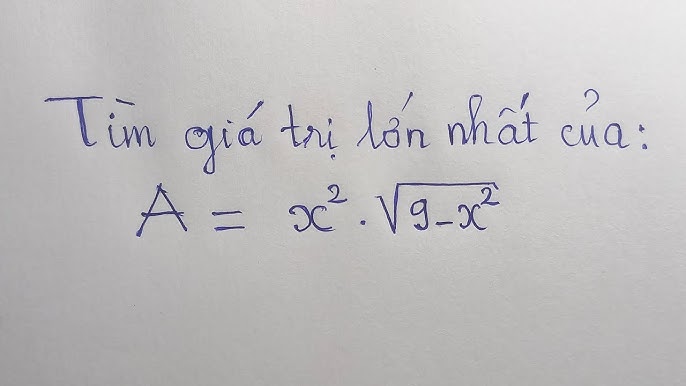 Tìm giá trị lớn nhất của:
A = x². √9-x²